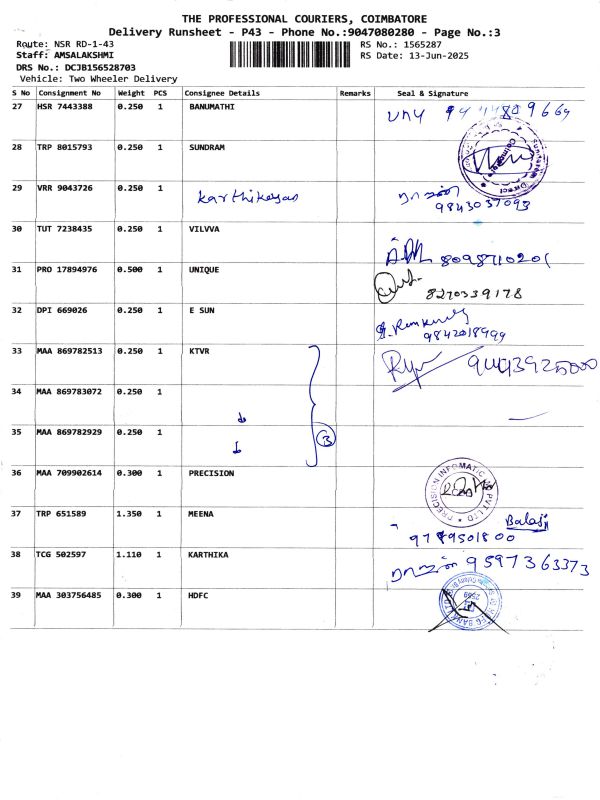 THE PROFESSIONAL COURIERS, COIMBATORE
Delivery Runsheet - P43 - Phone No.:9047080280 - Page No.:3
Route: NSR RD-1-43 RS No.: 1565287
Staff: AMSALAKSHMI RS Date: 13-Jun-2025
DRS No.: DCJB156528703
Vehicle: Two Wheeler Delivery
S No Consignment No Weight PCS Consignee Details Remarks Seal & Signature
27 HSR 7443388 0.250 1 BANUMATHI
28 TRP 8015793 0.250 1 SUNDRAM
29 VRR 9043726 0.250 1 Karthikeyan
9843037093
30 TUT 7238435 0.250 1 VILVVA
8098710201
31 PRO 17894976 0.500 1 UNIQUE
8270339178
32 DPI 669026 0.250 1 E SUN
9842018999
33 MAA 869782513 0.250 1 KTVR
34 MAA 869783072 0.250 1
35 MAA 869782929 0.250 1 3
36 MAA 709902614 0.300 1 PRECISION PRECISION INFOMATIC PVT LTD
37 TRP 651589 1.350 1 MEENA Balaji
9789501800
38 TCG 502597 1.110 1 KARTHIKA 9597363373
39 MAA 303756485 0.300 1 HDFC